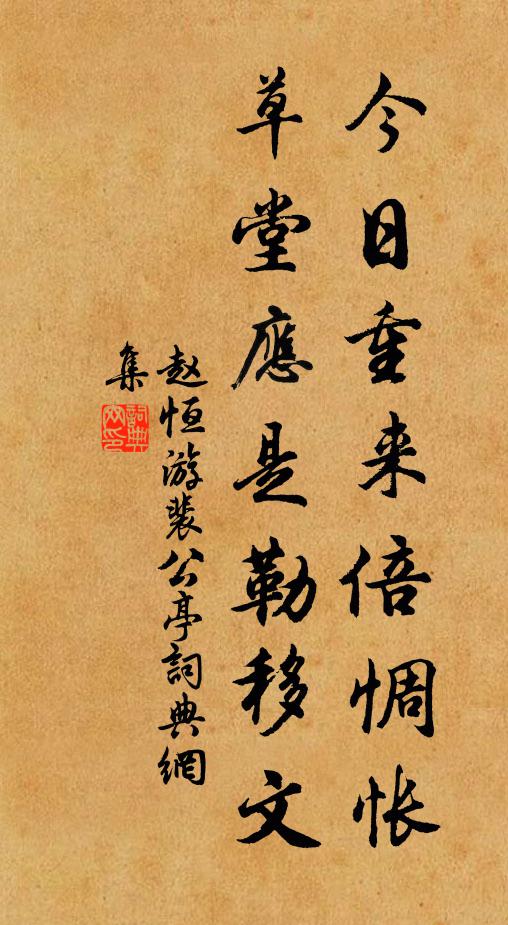 今日重来倍惆怅
草堂應是勒移文
赵恒游裴公亭詞典網
集
詞典
网印